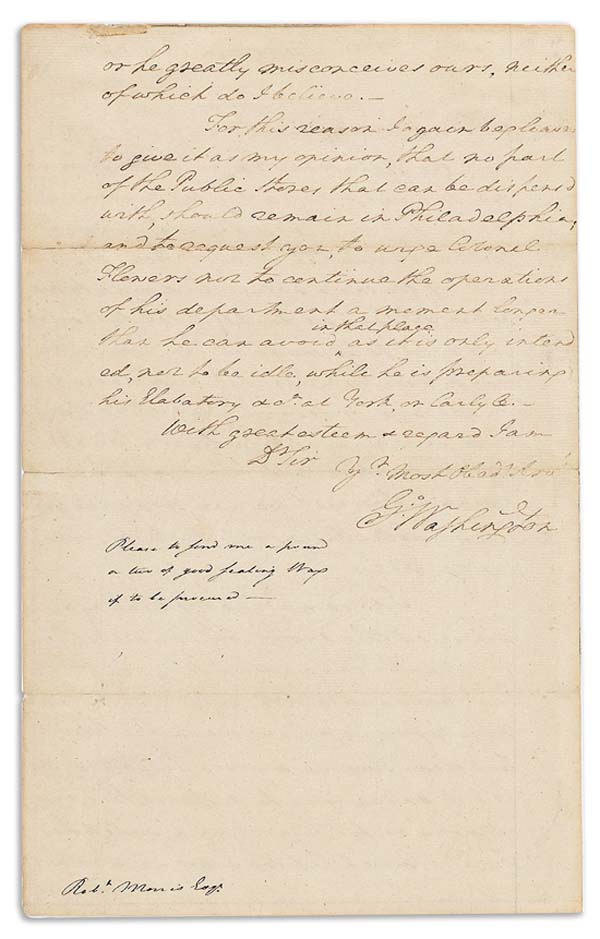 or he greatly misconceives ours, neither
of which do I believe.—
For this reason I again beg leave
to give it as my opinion, that no part
of the Public Stores that can be dispens'd
with, should remain in Philadelphia,
and to request you, to urge Colonel
Flowers not to continue the operations
of his department a moment longer
in that place
than he can avoid ^ as it is only intend
ed, not to be idle, while he is preparing
his Elabatory &ca. at York, or Carlyle.—
With great esteem & regard I am
Dr Sir Yr. Most Obedt Srvt
Go: Washington
Please to send me a pound
or two of good sealing Wax
if to be procured—
Robt. Morris Esqr.